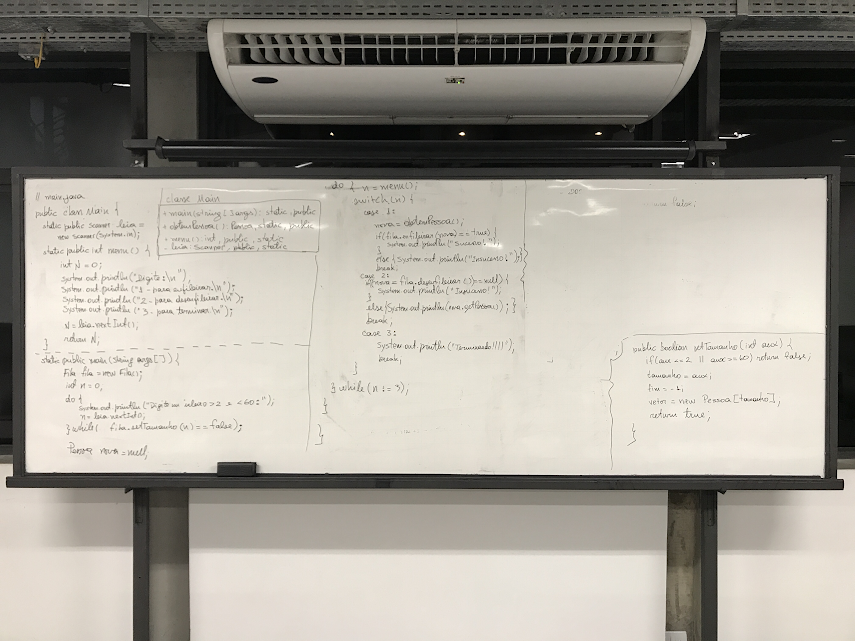 // main.java
public class Main {
static public Scanner leia =
new Scanner(System.in);
static public int menu() {
int N = 0;
System.out.println("Digite:\n");
System.out.println("1 - para enfileirar.\n");
System.out.println("2 - para desenfileirar.\n");
System.out.println("3 - para terminar.\n");
N = leia.nextInt();
return N;
}
static public main(String args[]) {
Fila fila = new Fila();
int n = 0;
do {
System.out.println("Digite um valor >2 e <60:");
n = leia.nextInt();
} while( fila.setTamanho(n) == false);
Pessoa nova = null;
classe Main
+ main(string[] args): static, public
+ obterPessoa(): Pessoa, static, public
+ menu(): int, public, static
- leia Scanner, public, static
do { n = menu();
switch(n) {
case 1:
nova = obterPessoa();
if(fila.enfileirar(nova) == true) {
System.out.println("Sucesso!");
}
else {System.out.println("Insucesso!");}
break;
case 2:
if(nova = fila.desenfileirar()) == null) {
System.out.println("Insucesso!");
}
else {System.out.println(nova.getPessoa()); }
break;
case 3:
System.out.println("Terminado!!!!");
break;
}
} while(n != 3);
}
}
public boolean setTamanho(int aux) {
if(aux <= 2 || aux >= 60) return false;
tamanho = aux;
fim = -1;
vetor = new Pessoa[tamanho];
return true;
}